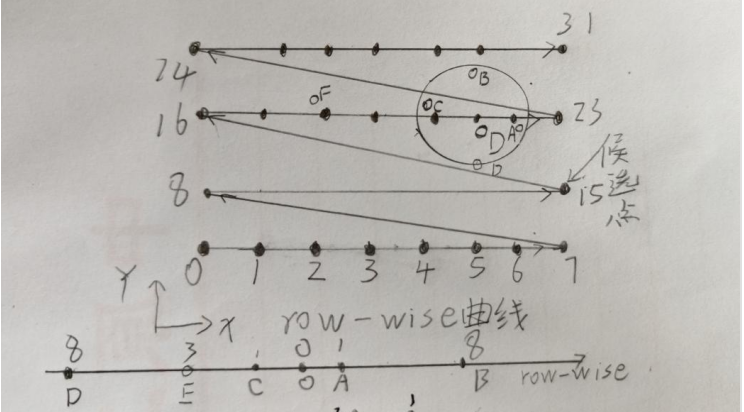 31
24
B
F
C
16
23
D
A
候
选
点
D
8
15
0 1 2 3 4 5 6 7
Y
X
row-wise曲线
8 3 1 0 1 8
D E C O A B row-wise